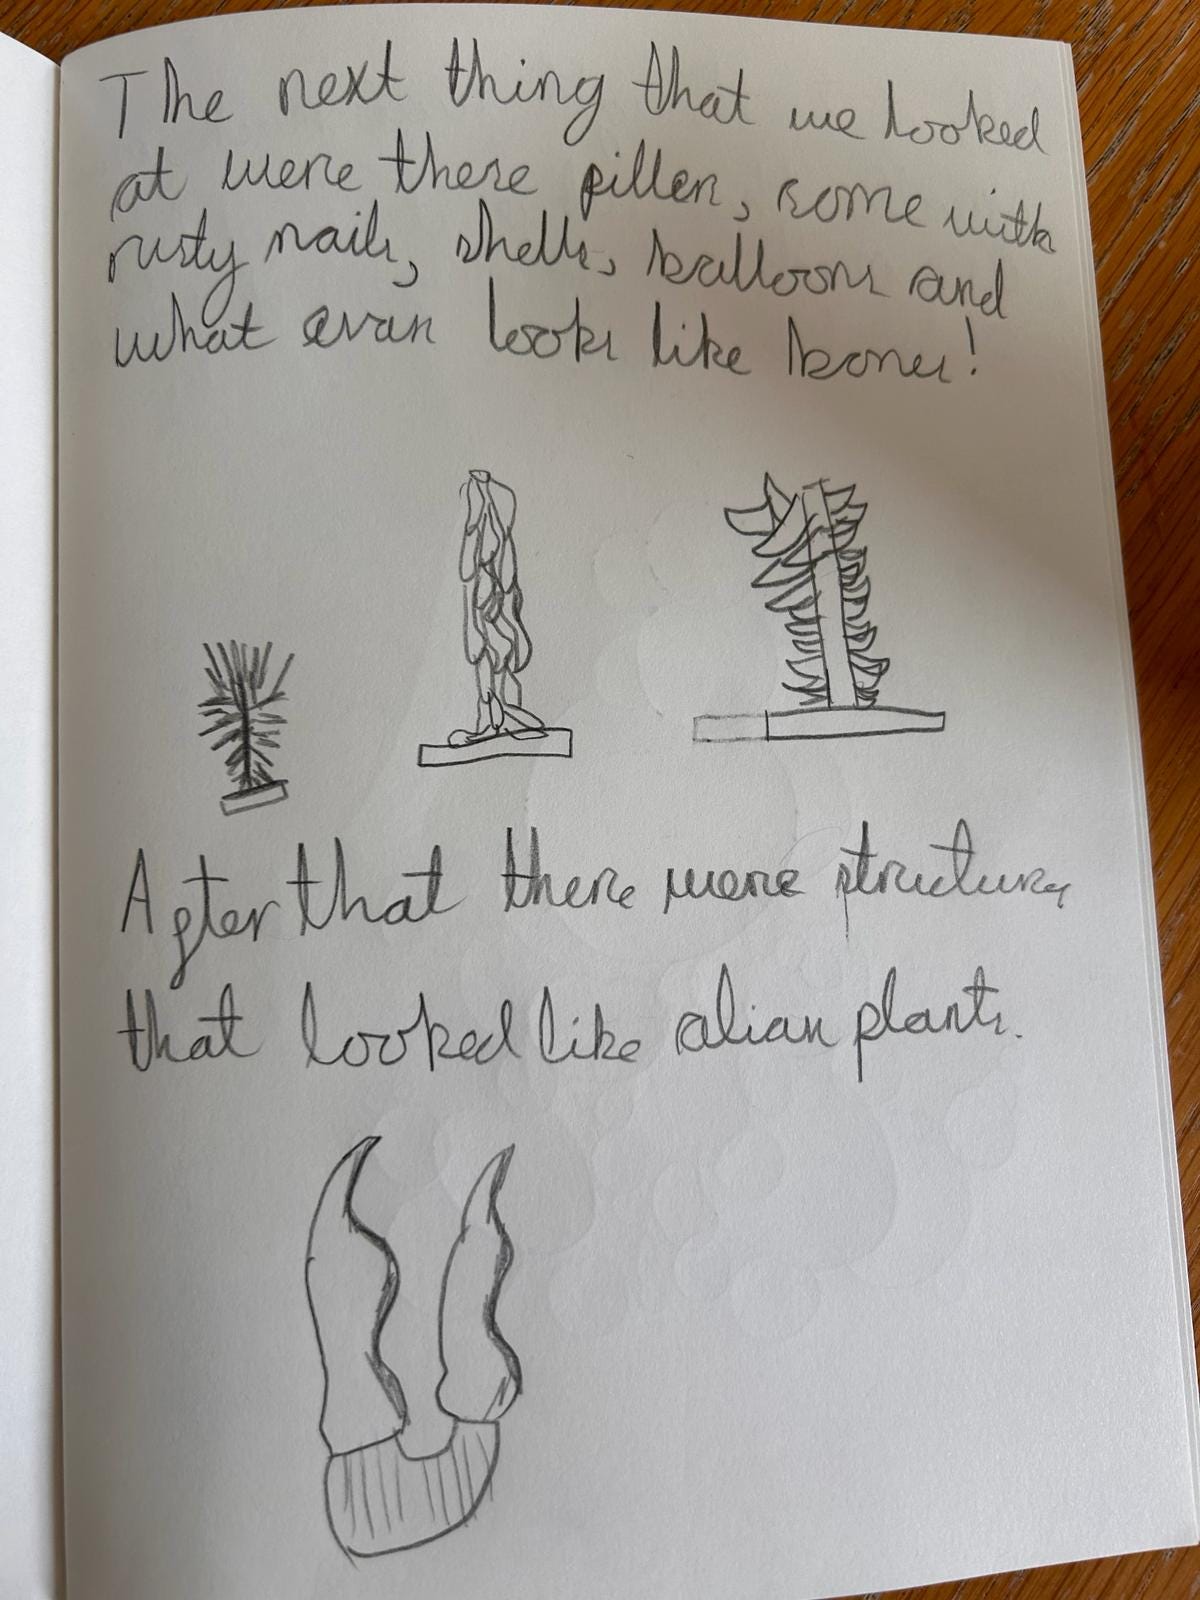 The next thing that we looked
at were these piller, some with
rusty nails, shells, balloons and
what evan looks like bones!
After that there were structures
that looked like alian plants.